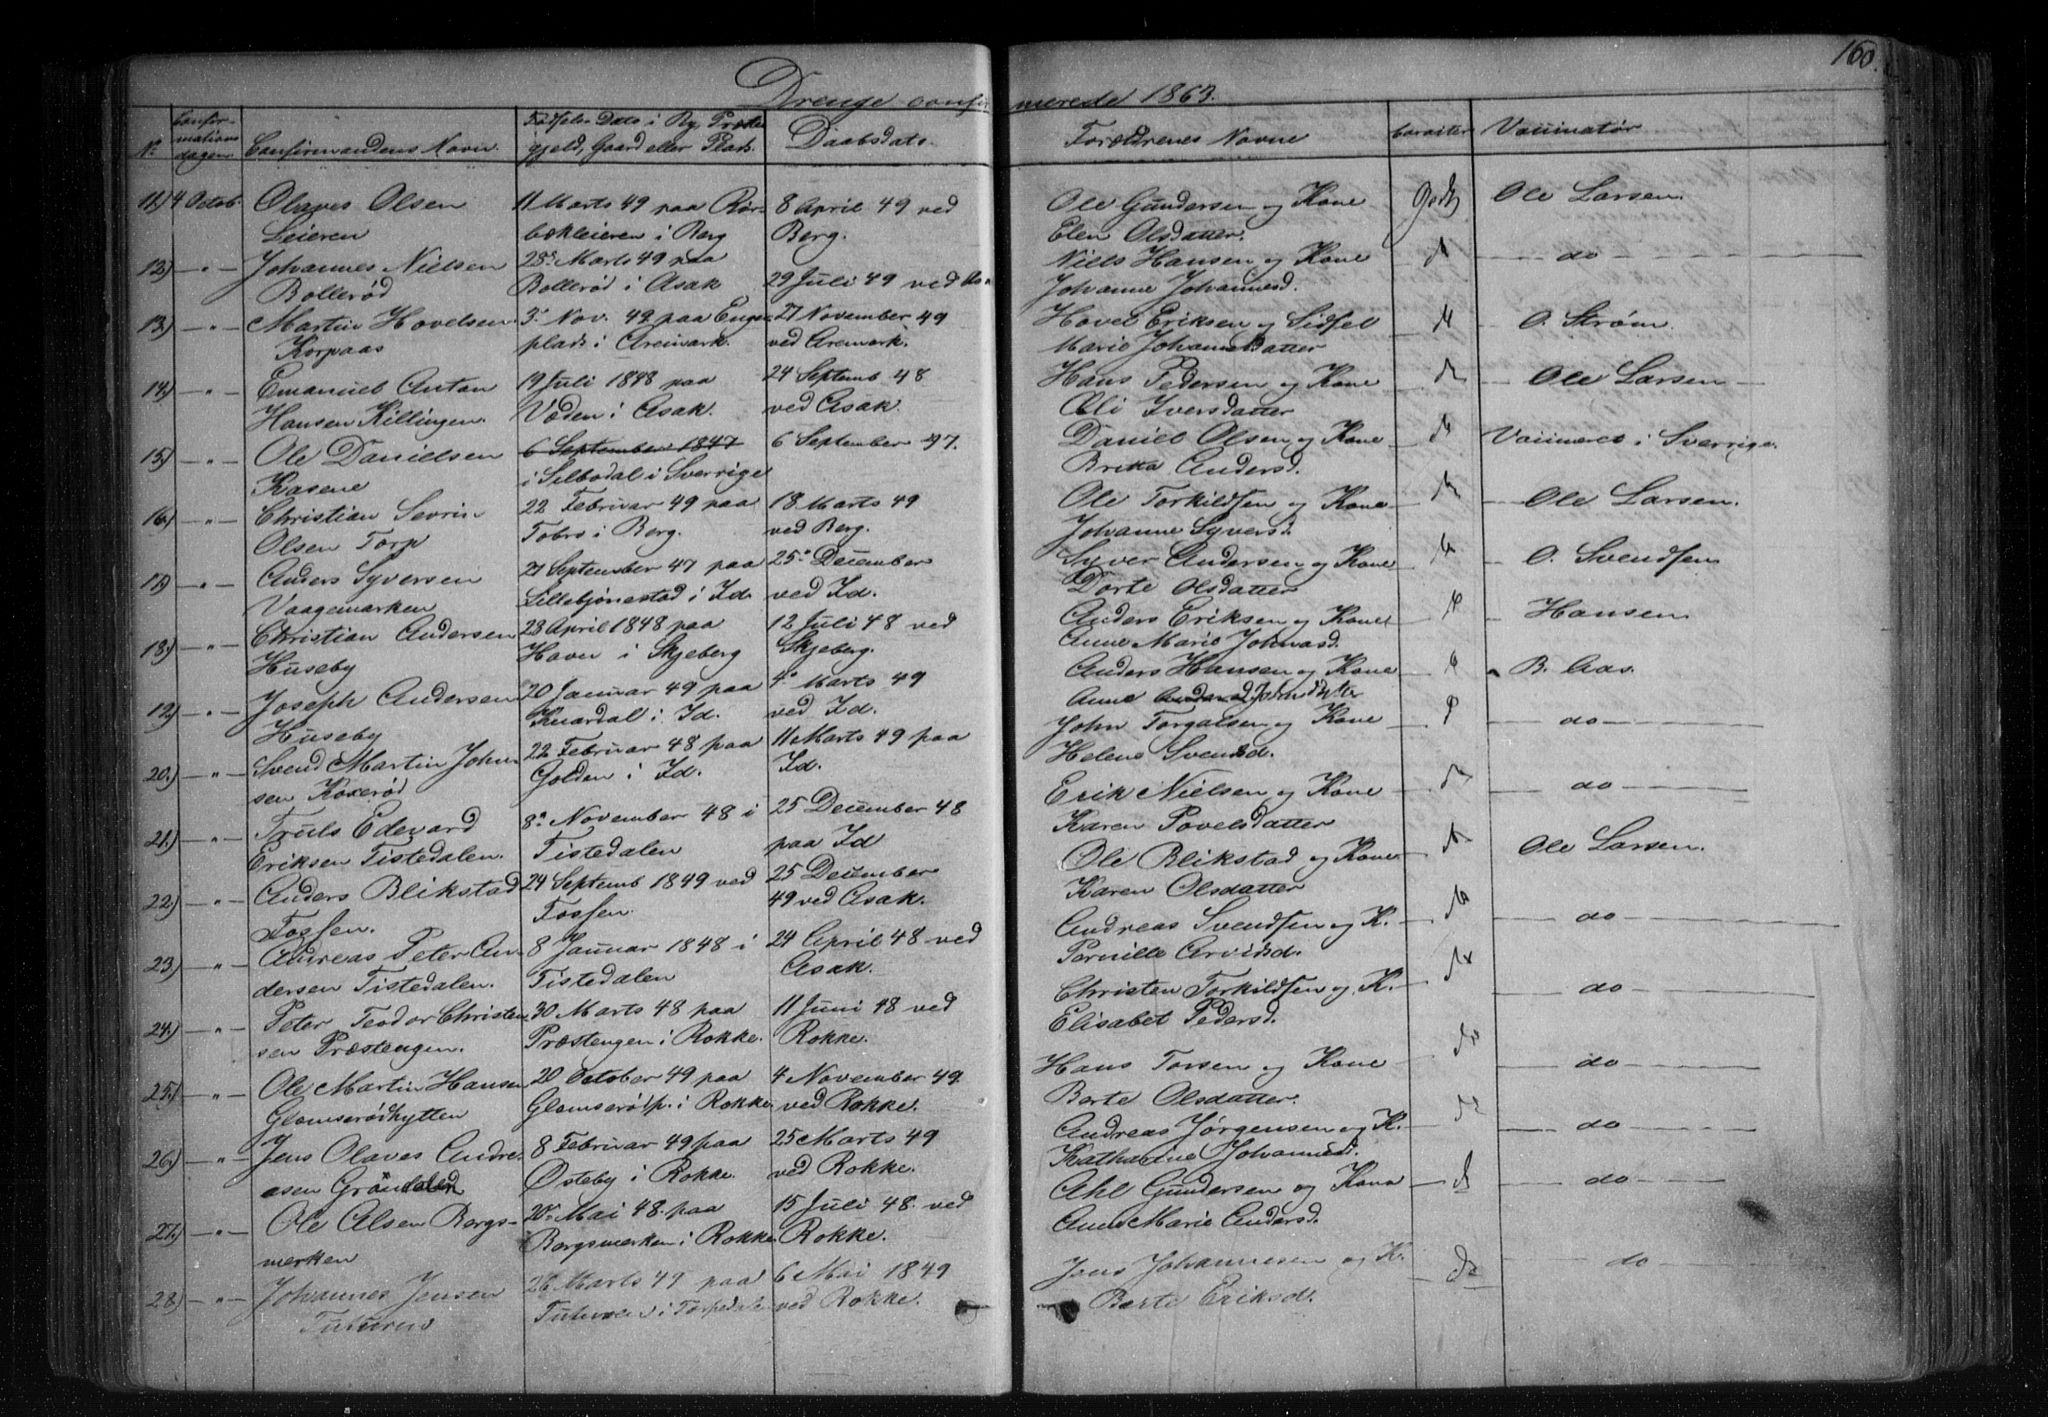 160.
Drenge confirmerede 1863.
No. Confirmations dagen. Confirmandens Navn. Fødsels Dato i By, Præstegjeld, Gaard eller Plads. Daabsdato. Forældrenes Navne Caracter Vaccinatør
11) 4 Octob. Olaves Olsen 11 Marts 49 paa Rør- 8 April 49 ved Ole Gundersen og Kone Godt Ole Larsen.
Leieren bækleieren i Berg Berg. Elen Olsdatter.
12) —"— Johannes Nielsen 28 Marts 49 paa Niels Hansen og Kone do
Bollerød Bollerød i Asak 29 Juli 49 ved Johanne Johannesd.
13) —"— Martin Hovelsen 3 Nov. 49 paa Enge- 27 November 49 Hovel Eriksen og Sidsel O. Strøm.
Korpaas plads i Aremark. ved Aremark. Marie Johannesdatter
14.) —"— Emanuel Anton 19 Juli 1848 paa 24 Septemb 48 Hans Pedersen og Kone Ole Larsen
Hansen Killingen. Veden i Asak. ved Asak. Oli Iversdatter
15.) —"— Ole Danielsen 6 September 1847 6 September 47. Daniel Olsen og Kone Vaccineret i Sverrige.
Kasene i Silbodal i Sverrige Britta Andersd.
16.) —"— Christian Sevrin 22 Februar 49 paa 18 Marts 49 Ole Torkildsen og Kone Ole Larsen.
Olsen Torp i Berg. ved Berg. Johanne Syversd.
17) —"— Anders Syversen 21 September 47 paa 25 December Syver Andersen og Kone O. Svendsen
Vaagemarken Lillebjørnestad i Id. ved Id. Dorte Olsdatter
18.) —"— Christian Andersen 28 April 1848 paa 12 Juli 48 ved Anders Eriksen og Kone Hansen
Huseby Havn i Skjeberg Skjeberg. Anne Marie
19.) —"— Joseph Andersen 20 Januar 49 paa 4 Marts 49 Anders Hansen og Kone B. Aas.
Huseby Knardal i Id. ved Id. Anne
20.) —"— Svend Martin John- 22 Februar 48 paa 11 Marts 49 paa John Torgalsen og Kone do
sen Koxerød Golden i Id. Id. Helene Svensd.
21.) —"— Truls Edevard 8 November 48 i 25 December 48 Erik Nielsen og Kone do
Eriksen Tistedalen. Tistedalen paa Id Karen Povelsdatter
22.) —"— Anders Blikstad 24 Septemb 1849 ved 25 December Ole Blikstad og Kone Ole Larsen.
Fossen. Fossen. 49 ved Asak. Karen Olsdatter
23.) —"— Andreas Peter An- 8 Januar 1848 i 24 April 48 ved Andreas Svendsen og K. do
dersen Tistedalen. Tistedalen Asak. Pernille Arvidsd.
24.) —"— Peter Teodor Christen- 30 Marts 48 paa 11 Juni 48 ved Christen Torkildsen og K. do
sen Præstengen. Præstengen i Rokke. Rokke. Elisabet Pedersd.
25.) —"— Ole Martin Hansen 20 October 49 paa 4 November 49 Hans Torsen og Kone do
Glomserødhytten Glomserødp. i Rokke. ved Rokke. Berte Olsdatter.
26.) —"— Jens Olaves Andre- 8 Februar 49 paa 25 Marts 49 Andreas Jørgensen og K. do
asen Grøndalen Østeby i Rokke. ved Rokke. Katharine Johannesd.
27.) —"— Ole Alsen Borgs- 20 Mai 48 paa 15 Juli 48 ved Ahl Gundersen og Kone do
merken Borgsmerken i Rokke Rokke. Anne Marie Andersd.
28.) —"— Johannes Jensen 26 Marts 49 paa 6 Mai 1849 Jens Johannesen og K. do
i Torpedalen ved Rokke. Berte Eriksd.